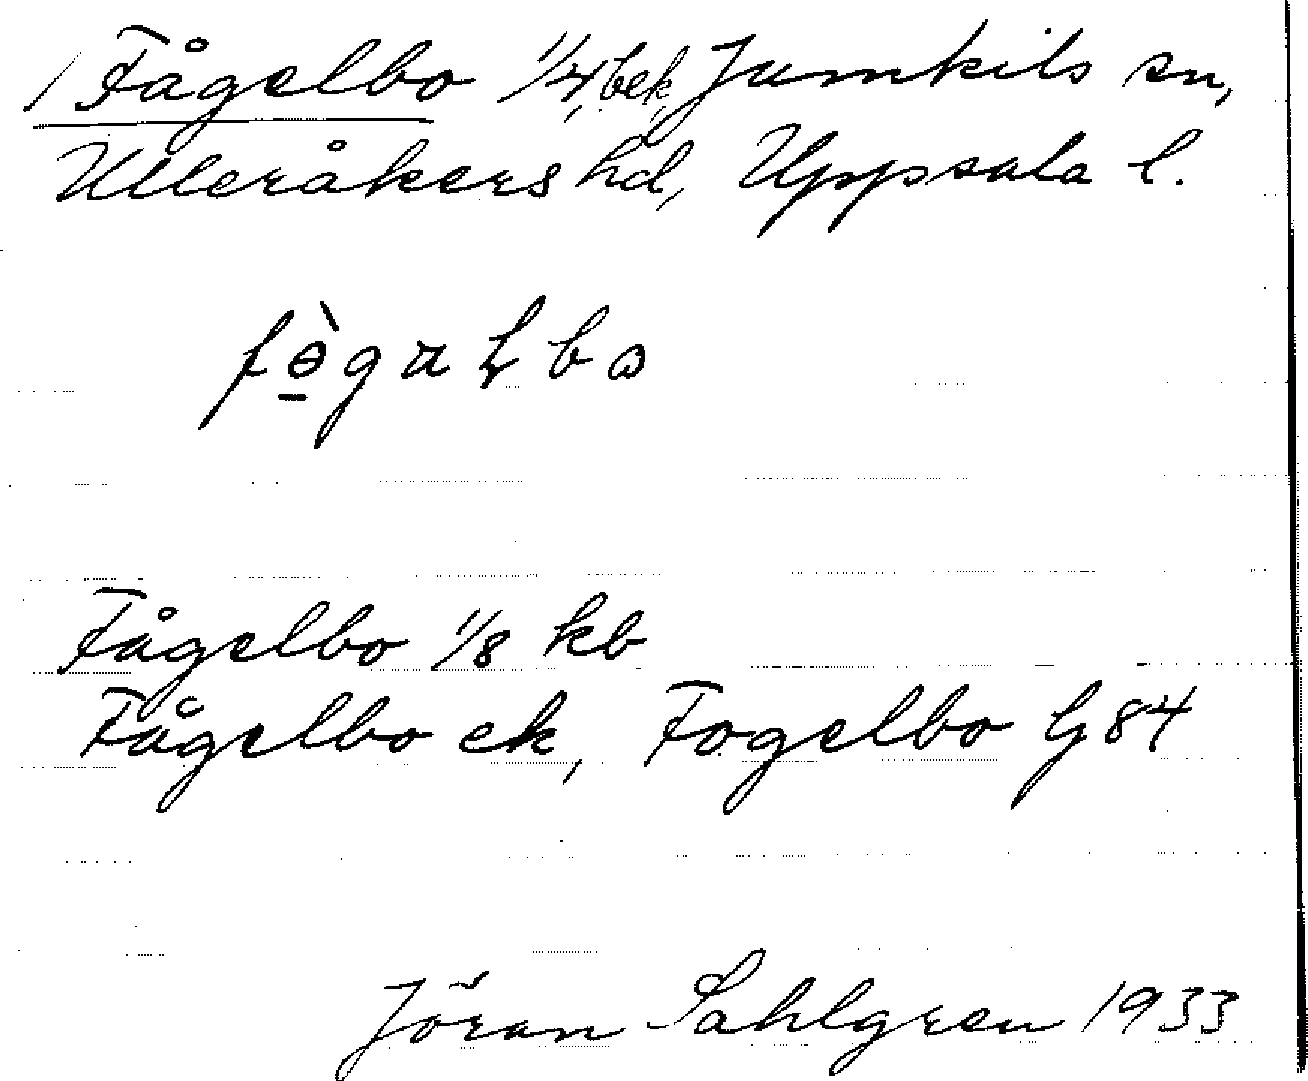 1 Fågelbo 1/4, bek, Jumkils sn,
Ulleråkers hd, Uppsala l.
Fågelbo 1/8 kb
Fågelbo ek, Fogelbo G 84
Jöran Sahlgren 1933